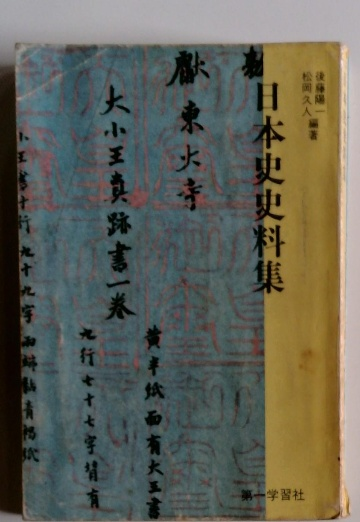 後藤陽一
松岡久人 編著
日本史史料集
勅
獻東大寺
大小王真跡書一巻
黄半紙面有大王書
九行七十七字背有
小王書十行九十九字両
第一学習社